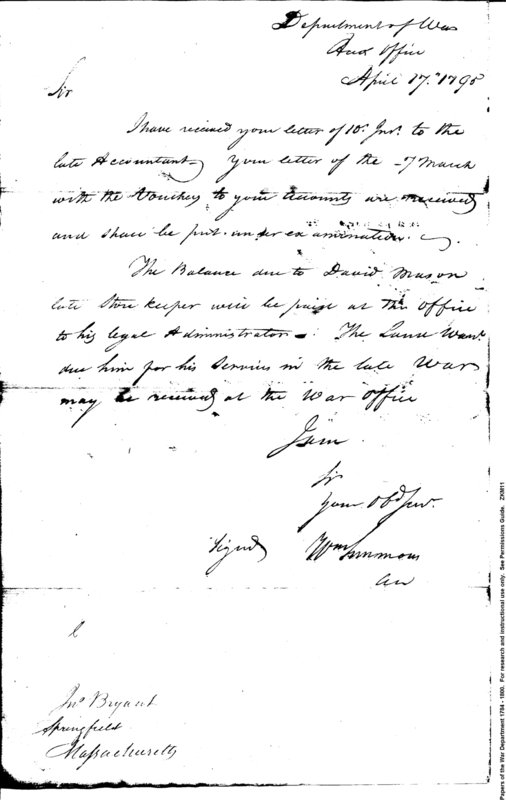 Department of War
Acct Office
April 17th 1795
Sir
I have received your letter of 10th Inst. to the
late Accountant Your letter of the 7 March
with the Vouchers to your Accounts are received
and shall be put under examination.
The Balance due to David Mason
late Store keeper will be paid at this office
to his legal Administrator. The Land Warrt.
due him for his services in the late War
may be received at the War Office
I am
Sir
Your Obd. Serv.
Signed Wm Simmons
Jno. Bryant
Springfield
Massachusetts
Papers of the War Department 1784 - 1800. For research and instructional use only. See Permissions Guide. ZKM11